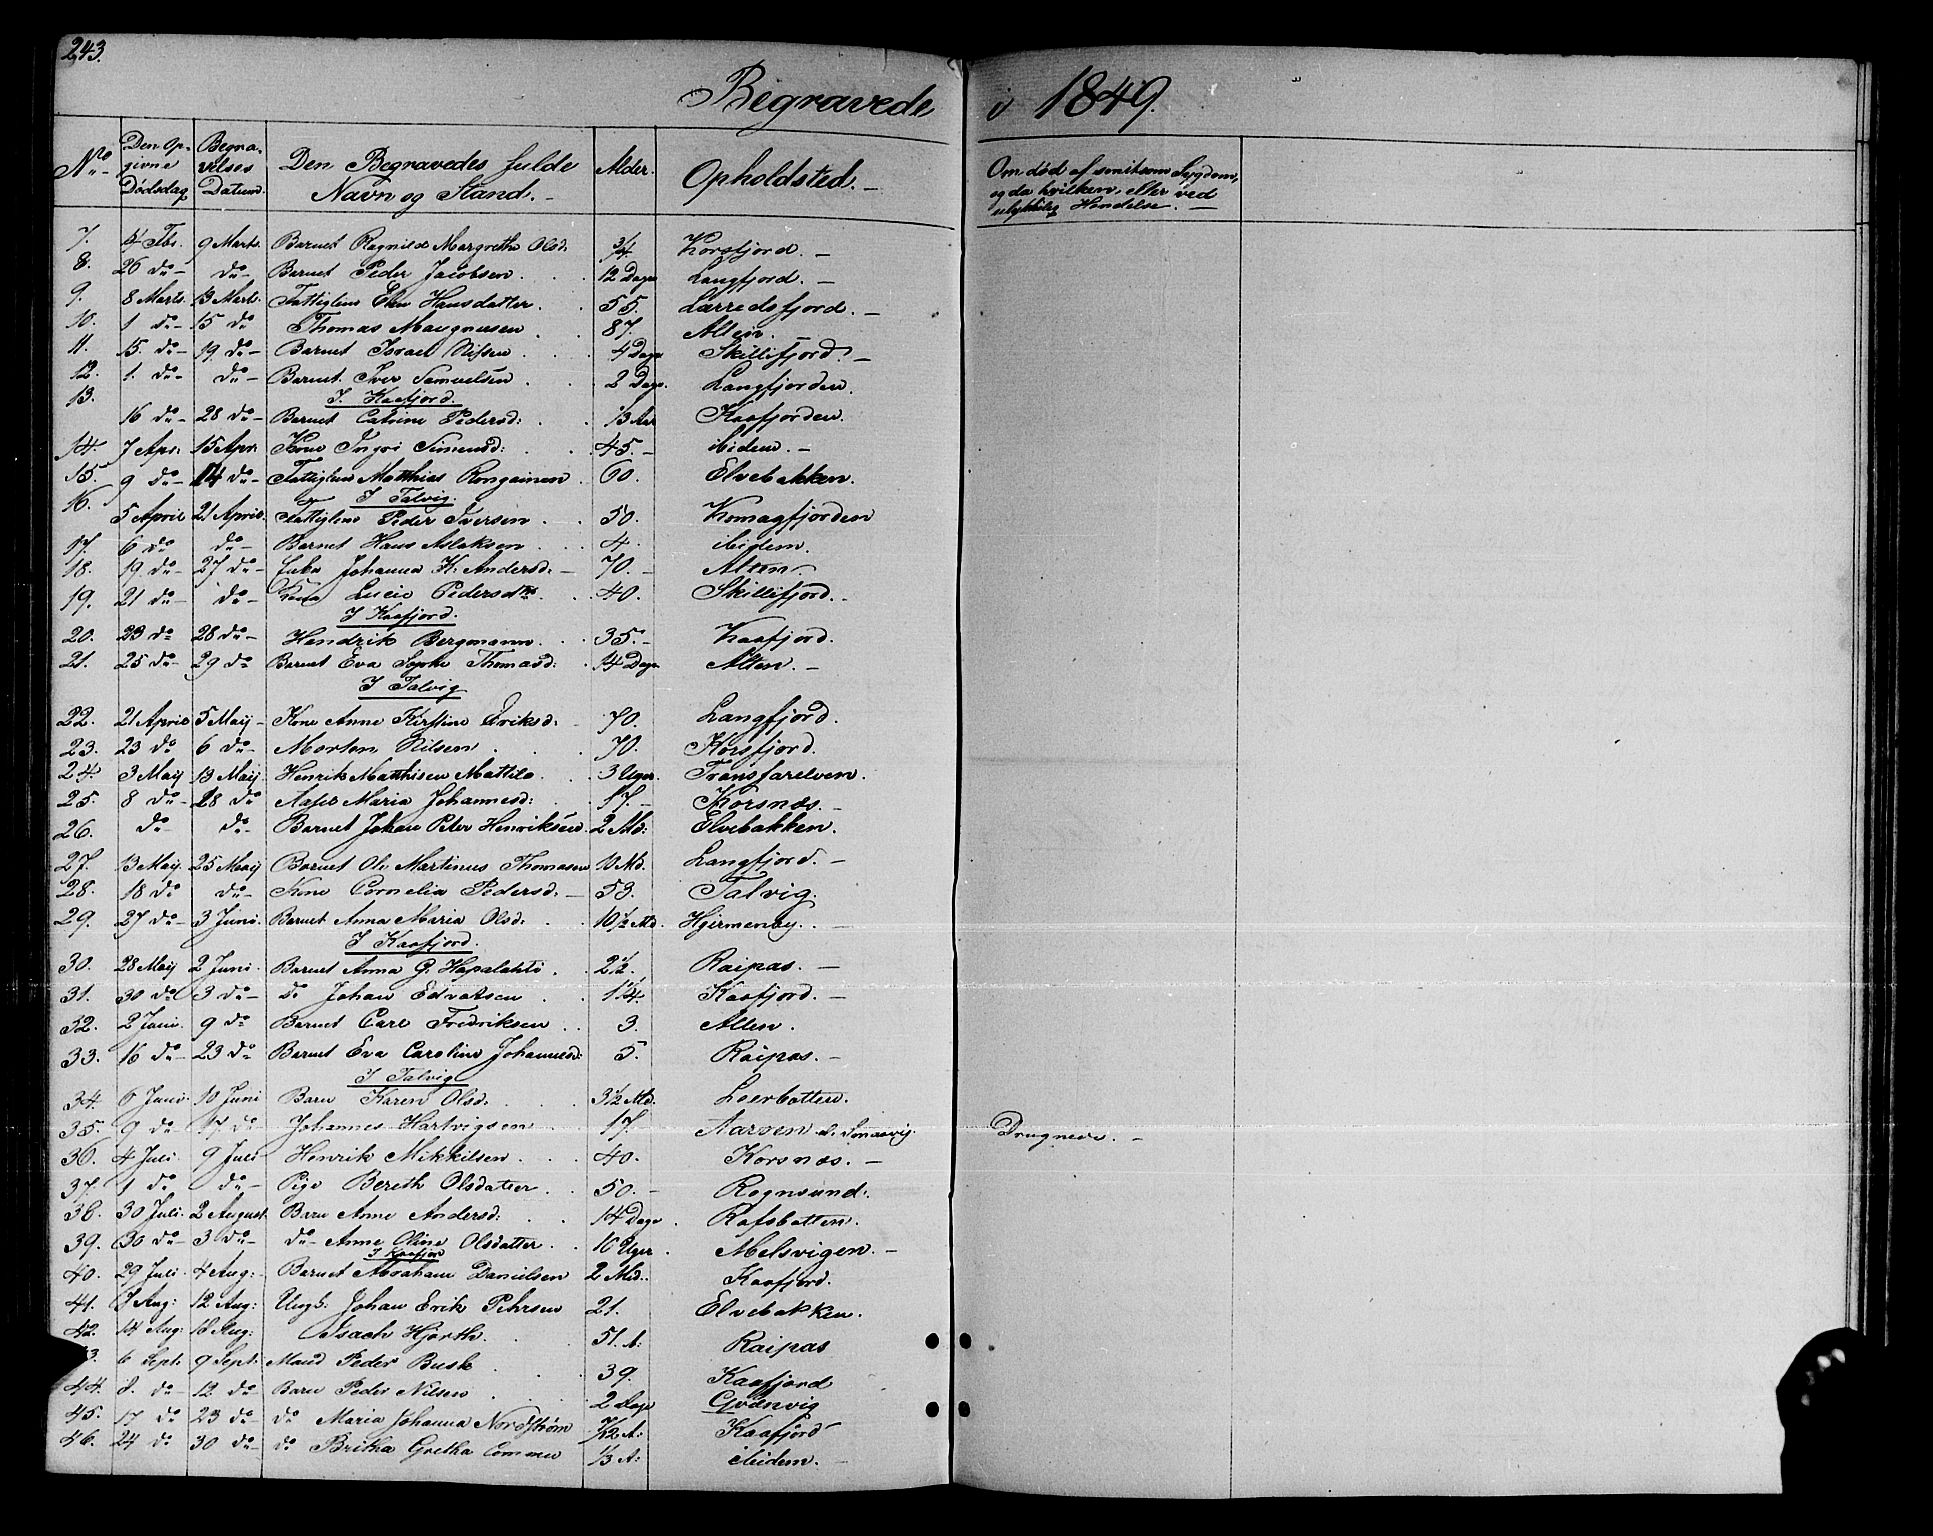 243.
Begravede i 1849.
No Den Opgivne Dødsdag Begravelses Datum. Den Begravedes fulde Navn og Stand. Alder. Opholdsted. Om død af smitsom Sygdom, og da hvilken, eller ved ulykkelig Hendelse.
7. 4 Fbr. 9 Marts. Barnet Ragnild Margrethe Olsd. 3/4. Korsfjord.
8. 26 do do Barnet Peder Jacobsen. 12 Dage Langfjord.
9. 8 Marts. 13 Marts. Fattiglem Elen Hansdatter. 55. Lerredsfjord.
10. 1 do 15 do Thomas Maugnusen 87. Alten.
11. 15. do 19. do Barnet Israel Nilsen 4 Dage Skillifjord.
12. 1. do do Barnet Iver Samuelsen 2 Dage. Langfjorden.
I. Kaafjord.
13. 16 do 28 do Barnet Catrine Pedersd: 1/3 Aar Kaafjorden.
14. 7 Apr: 15 Apr: Kone Ingri Simensd: 45. ibidem.
15. 9 do 14 do Fattiglem Matthias Rongainen 60. Elvebakken.
I Talvig.
16. 5 April 21 April. Fattiglem Peder Iversen 50. Komagfjorden
17. 6 do do Barnet Hans Aslaksen 4. ibidem.
18. 19. do 27 do Enke Johanna H. Andersd: 70. Alten.
19. 21 do do Kone Lucie Pedersdtr. 40. Skillifjord.
I Kaafjord.
20. 23 do 28 do Hendrik Bergmann. 35. Kaafjord.
21. 25 do 29 do Barnet Eva Sophie Thomasd: 14 Dage Alten.
I Talvig
22. 21 April 5 Maij Kone Anne Kirstine Eriksd: 70. Langfjord.
23. 23 do 6 do Morten Nilsen 70. Korsfjord.
24. 3 Maij 13 Maij. Henrik Matthisen Mattila 3 Uger. Transfarelven.
25. 8 do 28 do Aase Maria Johannesd: 17. Korsnæs.
26. do do Barnet Johan Peter Henriksen 2 Md: Elvebakken.
27. 13 Maij. 25 Maij Barnet Ole Martinus Thomasen 10 Md. Langfjord.
28. 18 do do Kone Cornelia Pedersd. 53. Talvig
29. 27 do 3 Juni. Barnet Anna Maria Olsd: 10 1/2 Md. Hjermenøy.
I Kaafjord.
30. 28 Maij 2 Juni. Barnet Anna G. Hapalahti 2 1/2. Raipas.
31. 30 do 3 do do Johan Edvatsen 1 1/4. Kaafjord.
32. 2 Juni. 9 do Barnet Carl Fredriksen 3. Alten.
33. 16 do 23 do Barnet Eva Caroline Johannesd: 5. Raipas.
I Talvig
34. 6 Juni. 10 Juni Barn Karen Olsd. 3 1/2 Md. Leerbotten.
35. 9 do 17. do Johannes Hartvigsen 17. Aarøen Drugnede.
36. 4 Juli. 9 Juli Henrik Mikkilsen 40. Korsnæs.
37. 1 do do Pige Bereth Olsdatter 50. Rognsund:
38. 30 Juli. 2 August. Barn Anne Andersd: 14 Dage. Rafsbotten.
39. 30 do 3 do do Anne Oline Olsdatter 16 Uger. Melsvigen.
I Kaafjord
40. 29 Juli. 4 Aug: Barnet Abraham Danielsen 2 Md: Kaafjord.
41. 7 Aug: 12 Aug: Ungk: Johan Erik Pehrsen 21. Elvebakken.
42. 14 Aug: 18 Aug: Isach Hjorth 51. A: Raipas
43. 6 Sept: 9 Sept: Mand Peder Busk 39. Kaafjord
44. 8. do 12 do Barn Peder Nilsen 2 Dage Qvænvig
45. 17 do 23 do do Maria Johanna Nordstrøm 7/12 A: Kaafjord
46. 24 do 30 do do Britha Gretha Commen 1/3 A: ibidem.